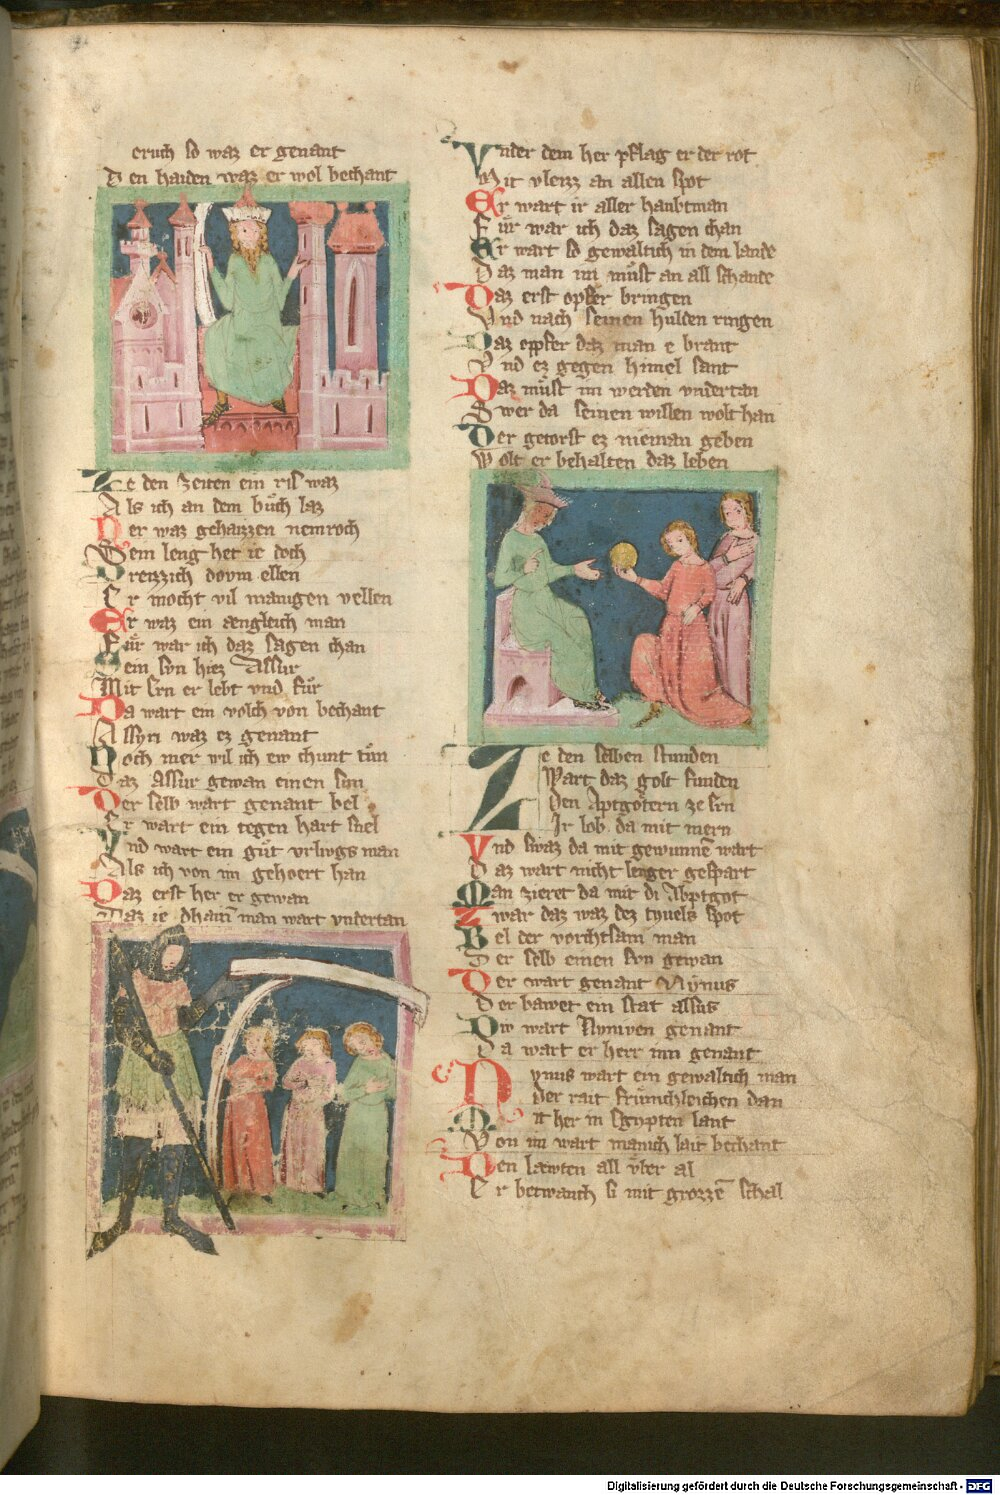 eruch so waz er genant
Den haiden waz er wol bechant
Ze den zeiten ein ris waz
Als ich an dem bůch laz
Der waz gehaizzen nemroch
Sein leng het ie doch
Dreizzich dovm ellen
Er mocht vil manigen vellen
Er waz ein ængleich man
Fuͤr war ich daz sagen chan
Sein svn hiez Assur
Mit srn er lebt vnd fůr
Da wart ein volch von bechant
Assyri waz ez genant
Noch mer wil ich ew chunt tůn
Daz Assur gewan einen sun
Der selb wart genant bel
Er wart ein tegen hart snel
Vnd wart ein gůt vrlivgs man
Als ich von im gehoert han
Daz erst her er gewan
Daz ie dhain man wart vndertan
Vnder dem her pflag er der rot
Mit vleizz an allen spot
Er wart ir aller haubtman
Fuͤr war ich daz sagen chan
Er wart so gewaltich in dem lande
Daz man im můst an all schande
Daz erst opfer bringen
Vnd nach seinen hulden ringen
Daz opfer daz man e brant
Vnd ez gegen himel sant
Daz můst im werden vndertan
Swer da seinen willen wolt han
Der getorst ez nieman geben
Wolt er behalten daz leben
Ze den selben stunden
Wart daz golt funden
Den Aptgötern ze srn
Ir lob da mit mern
Vnd swaz da mit gewunnē wart
Daz wart nicht lenger gespart
Man zieret da mit di Abptgot
Zwar daz waz dez tyuels spot
Bel der vorchtsam man
Der selb einen svn gewan
Der wart genant Nynus
Der bawet ein stat assus
Div wart Nyniven genant
Da wart er herr inn genant
Nynus wart ein gewaltich man
Der rait friumchleichen dan
Mit her in Egypten lant
Von im wart manich lait bechant
Den læwten all vͤber al
Er betwanch si mit grozzē schal
Digitalisierung gefördert durch die Deutsche Forschungsgemeinschaft - DFG